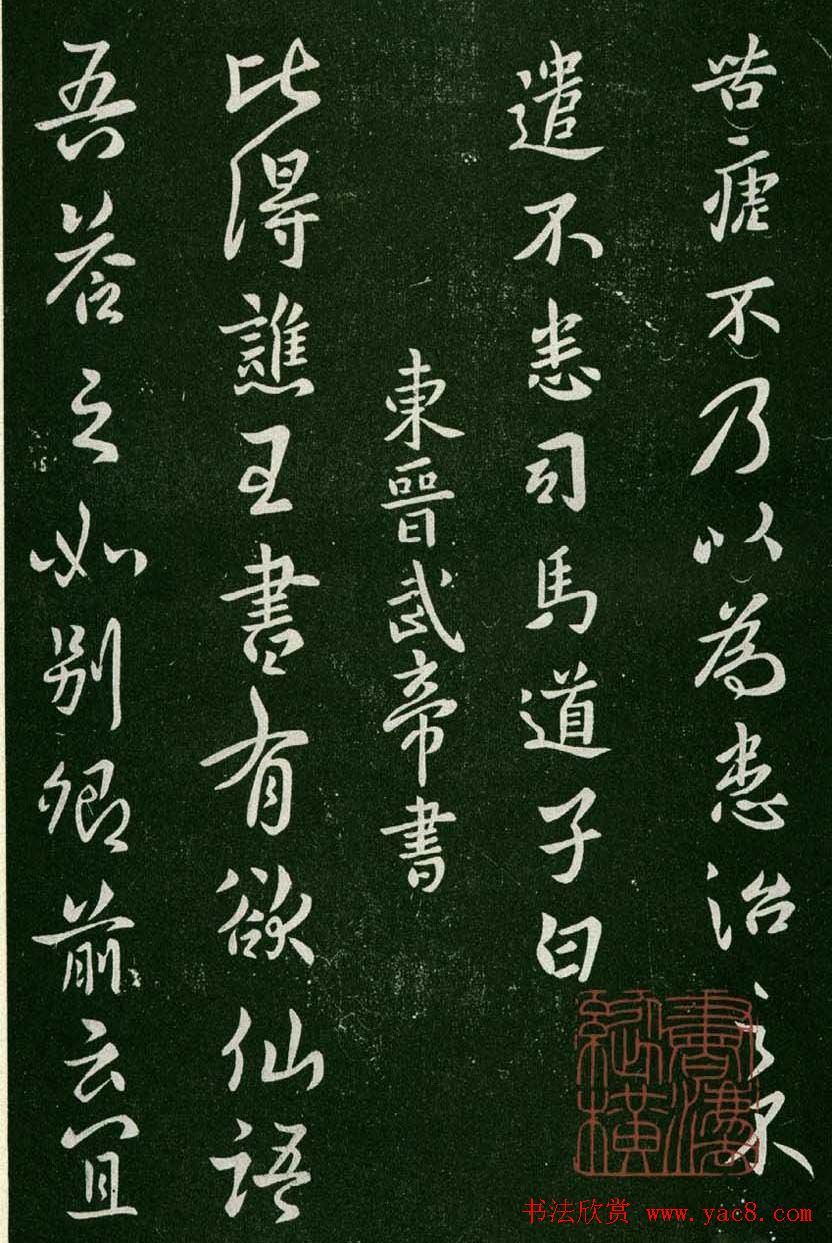 苦㾮不乃以為患治之不
遣不恙司馬道子白
東晉武帝書
比得譙王書有欲仙語
吾答之如別卿前云宜
書法縱橫
书法欣赏 www.yac8.com